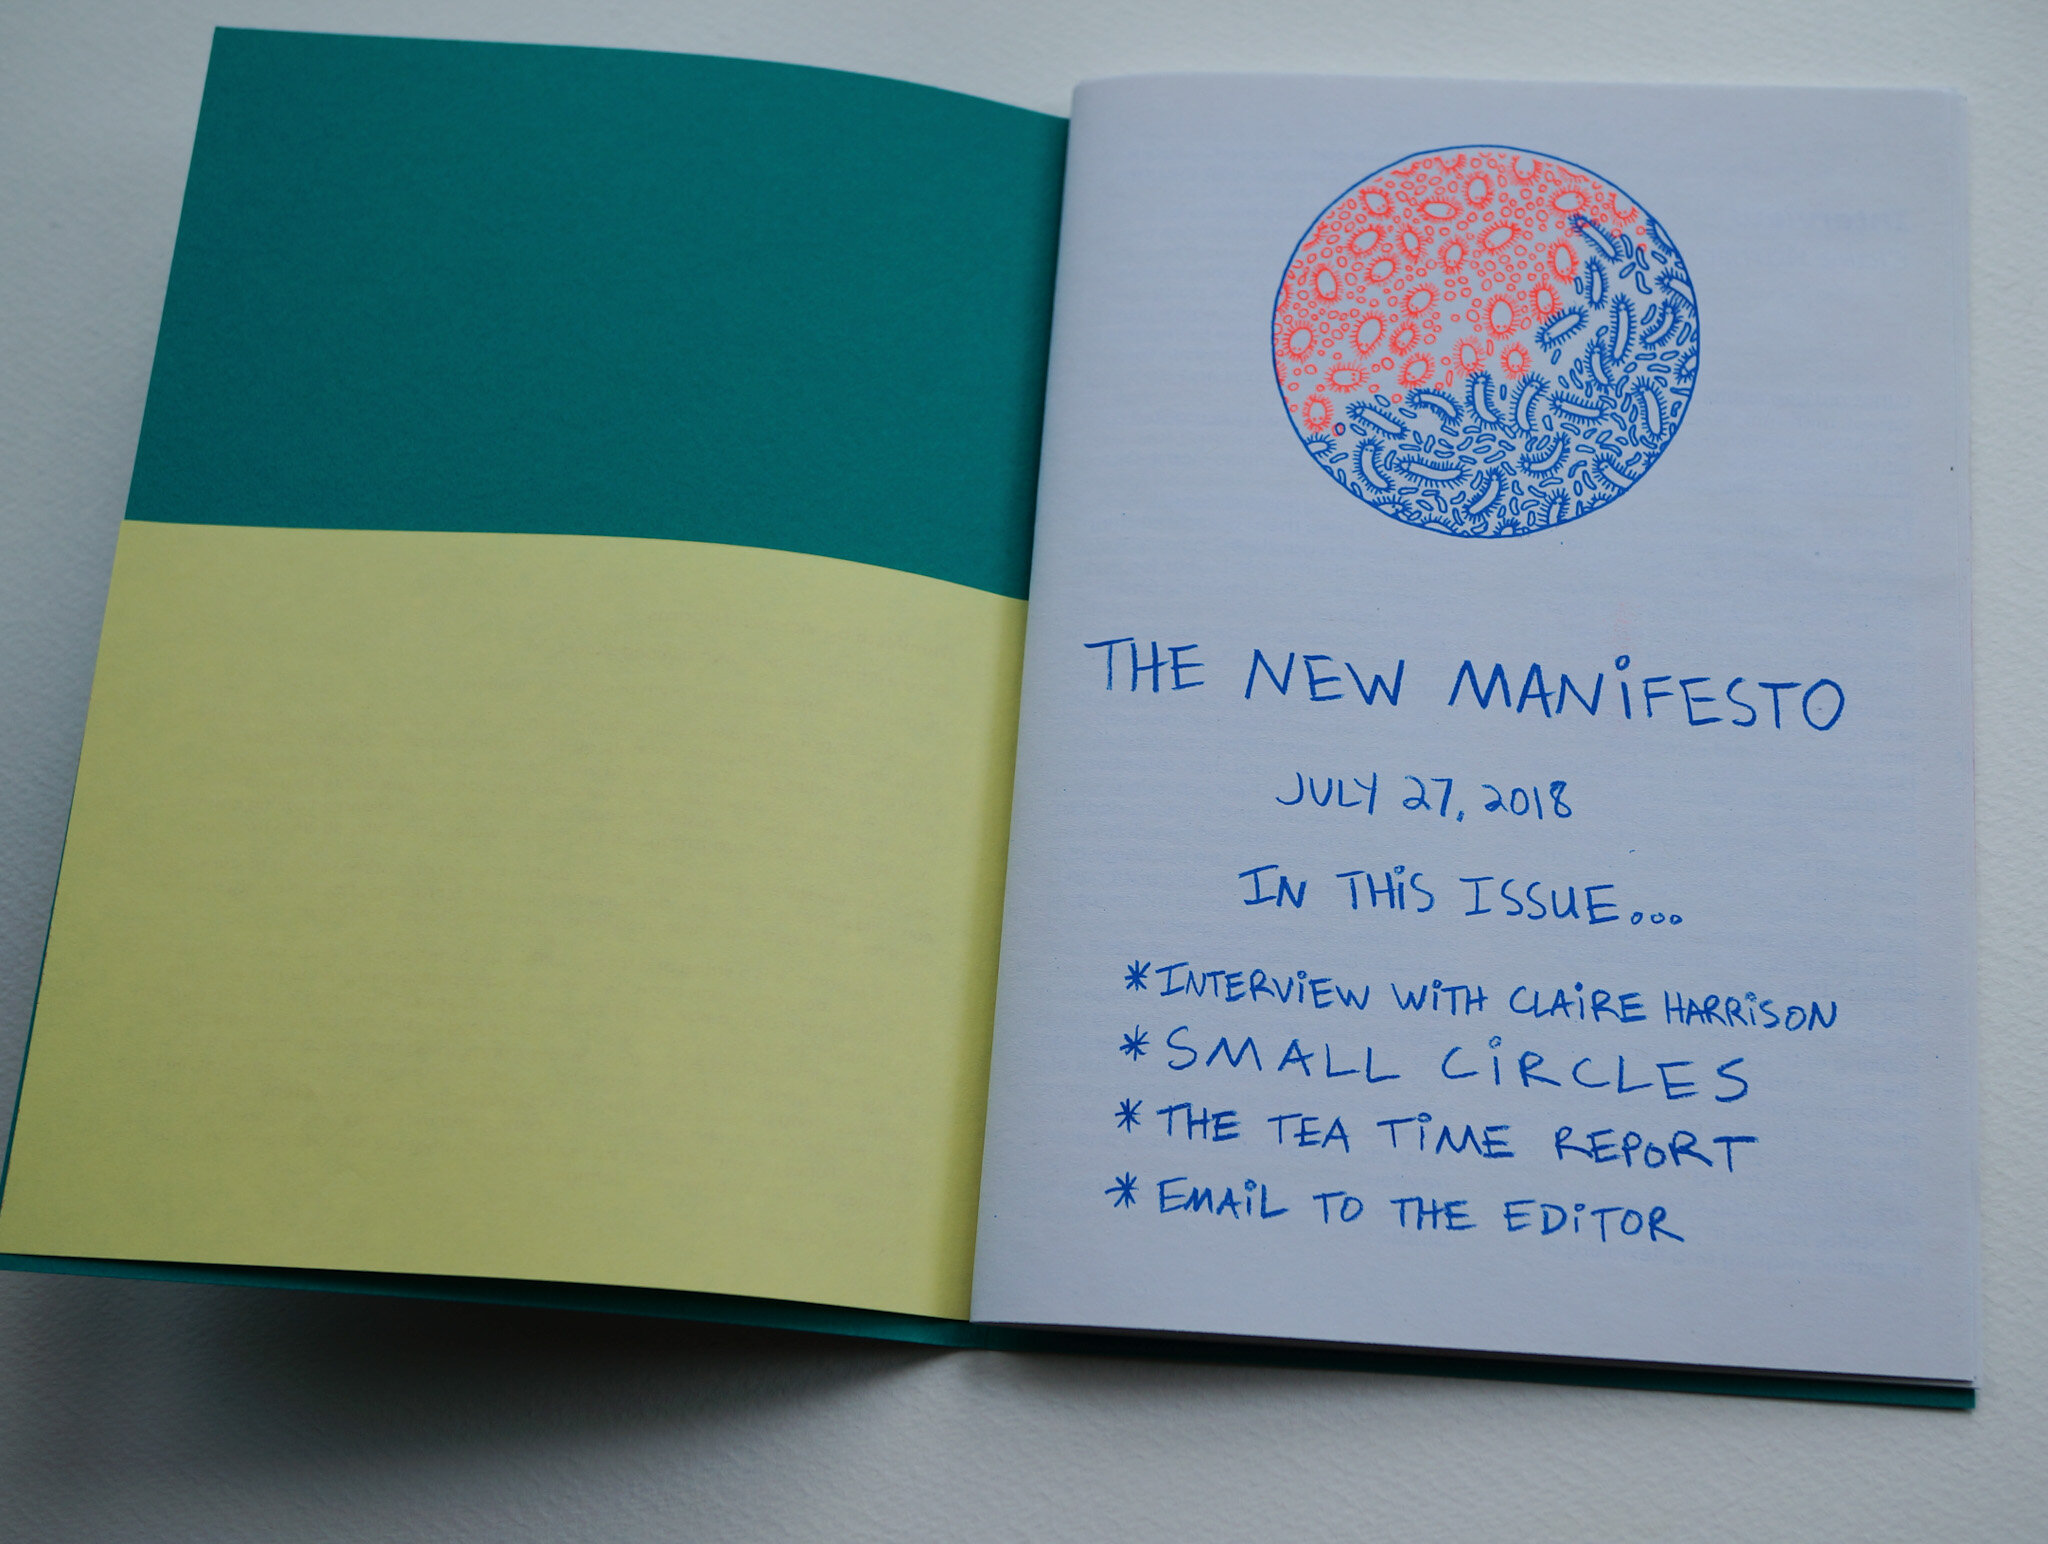 THE NEW MANiFESTO
JULY 27, 2018
IN THiS ISSUE...
*INTERViEW WiTH CLAiRE HARRiSON
*SMALL CiRCLES
*THE TEA TiME REPORT
*EMAiL TO THE EDiTOR